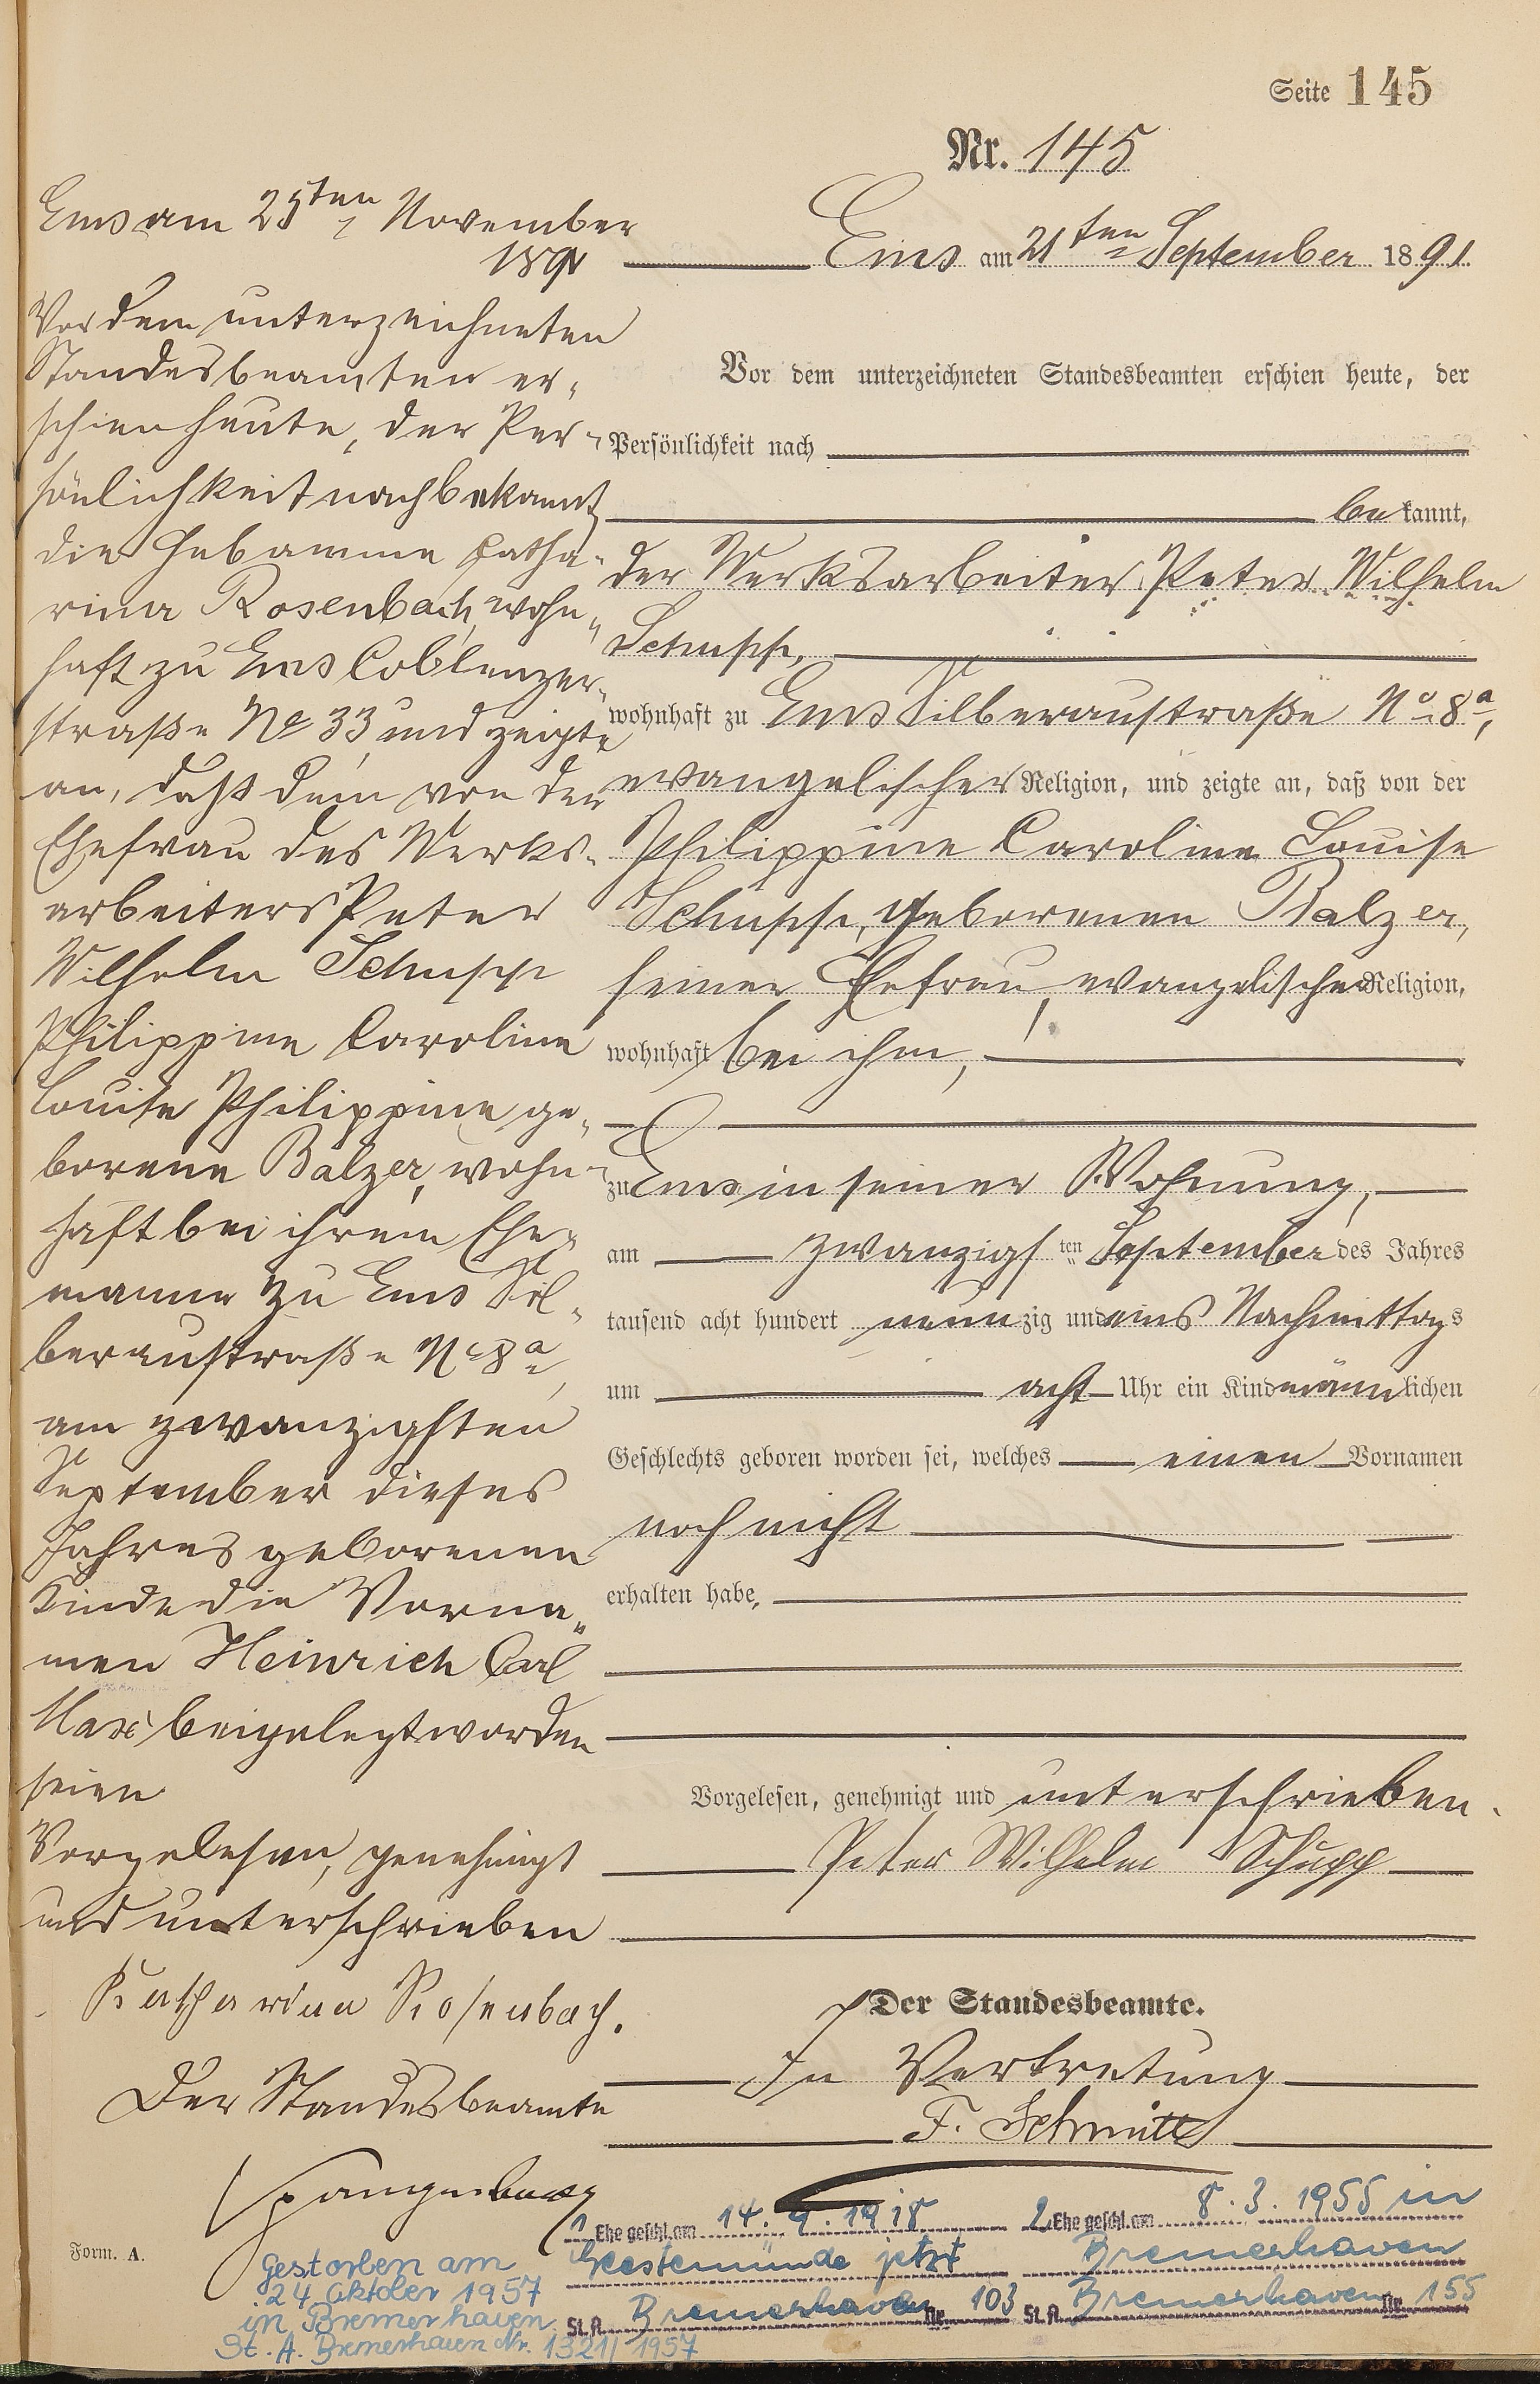 Seite 145
Nr. 145
Ems am 21ten September 1891.
Vor dem unterzeichneten Standesbeamten erschien heute, der
Persönlichkeit nach
bekannt,
der Werksarbeiter Peter Wilhelm
Schupp,
wohnhaft zu Ems Silberaustraße No 8a,
evangelischer Religion, und zeigte an, daß von der
Philippine Caroline Louise
Schupp, geborenen Balzer,
seiner Ehefrau, evangelischer Religion,
wohnhaft bei ihm,
zu Ems in seiner Wohnung,
am zwanzigsten September des Jahres
tausend acht hundert neunzig und eins Nachmittags
um acht Uhr ein Kind männlichen
Geschlechts geboren worden sei, welches einen Vornamen
noch nicht
erhalten habe,
Vorgelesen, genehmigt und unterschrieben.
Peter Wilhelm Schupp
Der Standesbeamte.
In Vertretung
F. Schmitt
Ems am 25ten November
1891
Vor dem unterzeichneten
Standesbeamten er-
schien heute, der Per-
sönlichkeit nach bekannt
die Hebamme Catha-
rina Rosenbach, wohn-
haft zu Ems Coblenzer-
straße No 33 und zeigte
an, daß dem von der
Ehefrau des Werks-
arbeiters Peter
Wilhelm Schupp
Philippine Caroline
Louise Philippine ge-
borene Balzer, wohn-
haft bei ihrem Ehe-
manne zu Ems Sil-
beraustraße No 8a,
am zwanzigsten
September dieses
Jahres geborenen
Kinde die Vorna-
men Heinrich Carl
Max beigelegt worden
seien
Vorgelesen, genehmigt
und unterschrieben
Katharina Rosenbach.
Der Standesbeamte
Spangenberg
1. Ehe geschl. am 14. 9. 1918
Geestemünde jetzt
St.A. Bremerhaven Nr. 103
2. Ehe geschl. am 8. 3. 1955 in
Bremerhaven
St.A. Bremerhaven Nr. 155
Form. A.
Gestorben am
24 Oktober 1957
in Bremerhaven
St. A. Bremerhaven Nr. 1321/1957